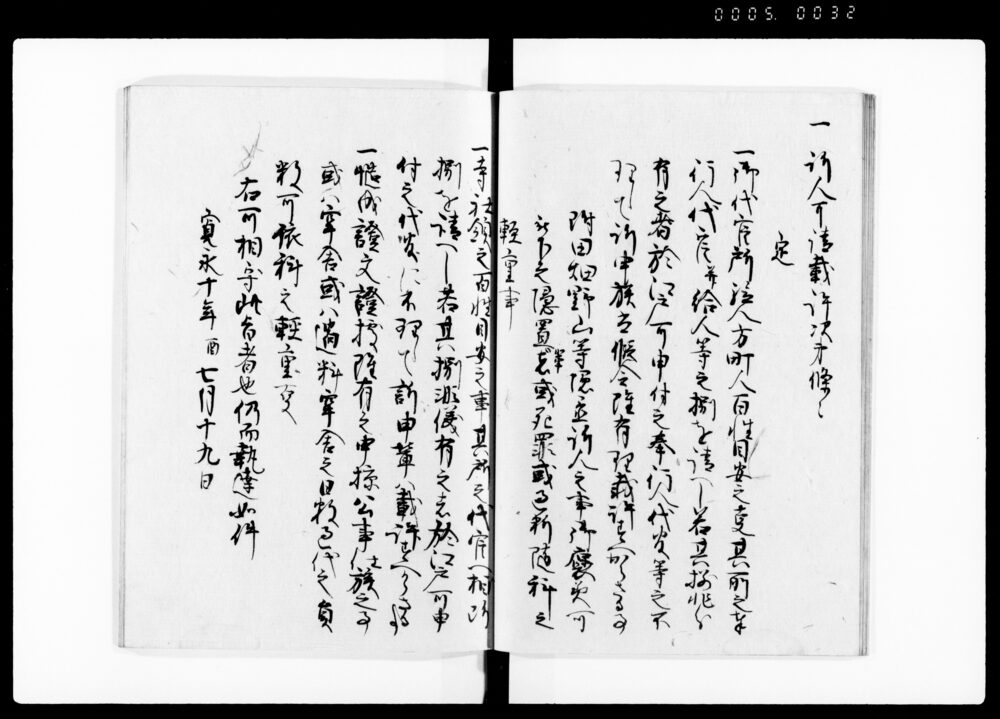 0005. 0032
一 訴人可請裁許次第條々
定
一御代官所給人方町人百性目安之事其所之奉
行人代官并給人等之捌を請へし若其捌非分
有之者於江戸可申付之奉行人代官等之不
理して訴申族者假令雖有理裁許すへからさる事
附田畑野山等隠置訴人之事御褒美可
被下之隠置者或死罪或過料随科之
軽重事
一寺社領之百性目安之事其所之代官へ相断
捌を請へし若其捌非儀有之者於江戸可申
付之代官に不理して訴申輩ハ裁許すへからさる事
一慥成證文證據雖有之申掠公事仕族之事
或ハ牢舎或ハ過料牢舎之日数過代之員
数可依科之軽重事
右可相守此旨者也仍而執達如件
寛永十年酉七月十九日